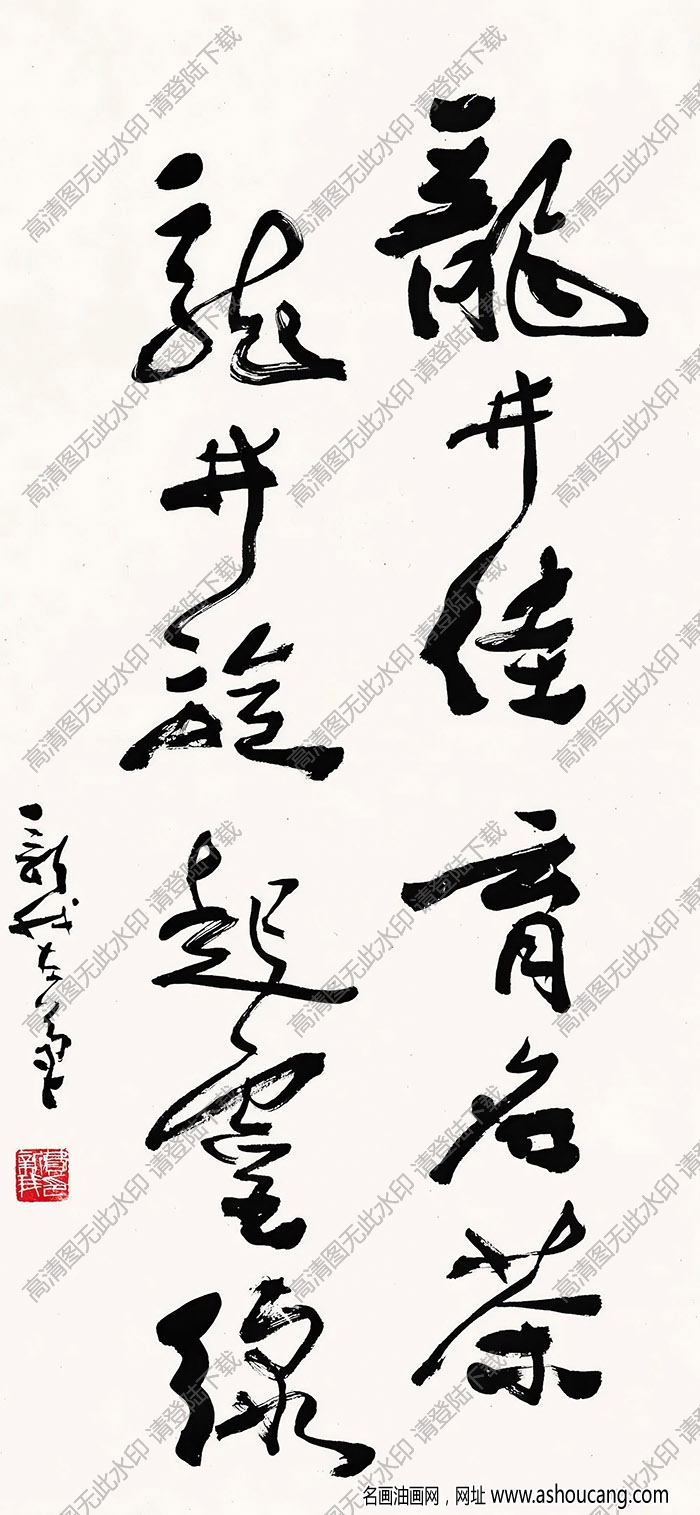 龍井佳育名茶
龍井起綠
新我左筆
高清图无此水印 请登陆下载
名画油画网，网址 www.ashoucang.com